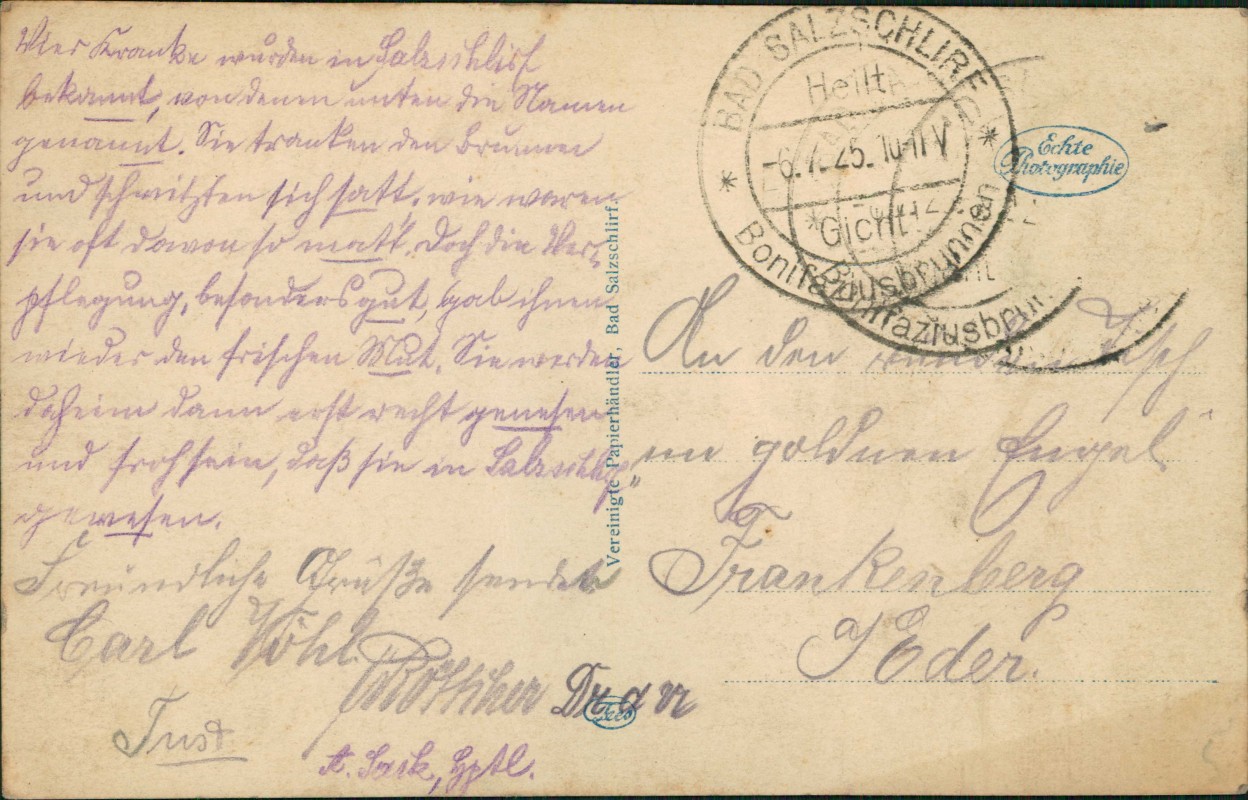 Vier Kranke wurden in Salzschlirf
bekannt, von denen unten die Namen
genannt. Sie tranken den Brunnen
und schwitzten sich satt, wie waren
sie oft davon so matt. Doch die Ver-
pflegung, besonders gut, gab ihnen
wieder den frischen Mut. Sie werden
daheim dann erst recht genesen
und froh sein, daß sie in Salzschlirf
gewesen.
Freundliche Grüße sendet
Carl Vöhl
Just
A. Sack, Hptl.
Vereinigte Papierhändler, Bad Salzschlirf.
BAD SALZSCHLIRF
Heilt
Gicht
Bonifaziusbrunnen
Echte
Photographie
An den runden Tisch
im goldnen Engel
Frankenberg
Eder.